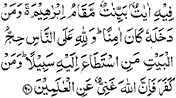 فِيهِ اٰيٰتٌۢ بَيِّنٰتٌ مَّقَامُ اِبْرٰهِيْمَ ۚ وَمَنْ
دَخَلَهٗ كَانَ اٰمِنًا ؕ وَلِلّٰهِ عَلَى النَّاسِ حِجُّ
الْبَيْتِ مَنِ اسْتَطَاعَ اِلَيْهِ سَبِيْلًا ؕ وَمَنْ
كَفَرَ فَاِنَّ اللّٰهَ غَنِيٌّ عَنِ الْعٰلَمِيْنَ ﴿۹۷﴾